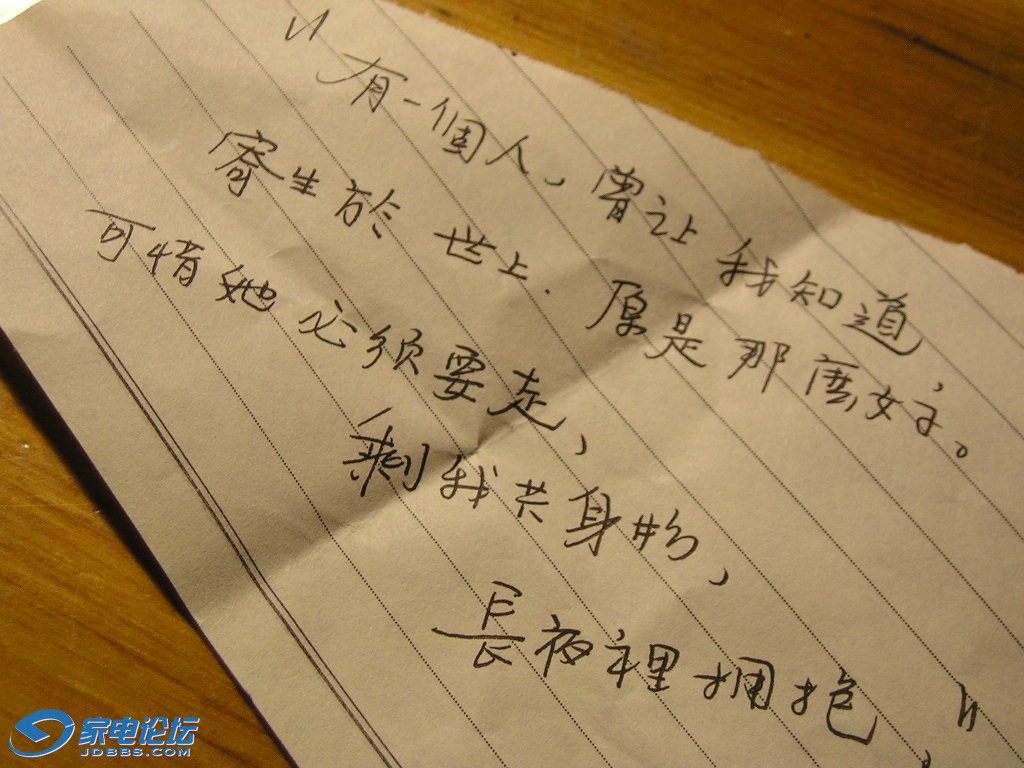 "有一個人,曾让我知道,
寄生於世上.原是那麽好。
可惜她必须要走,
剩我共身物,
長夜裡拥抱."
家电论坛
JDBBS.COM